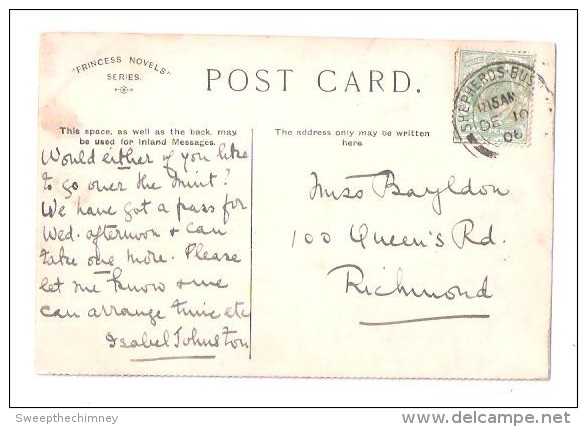 "PRINCESS NOVELS"
SERIES.
POST CARD.
This space, as well as the back, may
be used for Inland Messages.
The address only may be written
here
SHEPHERDS·BUS
12 15AM
DE 10
06
Would either of you like
to go over the Mint?
We have got a pass for
Wed. afternoon & can
take one more. Please
let me know & we
can arrange time etc
Isabel Johnston
Miss Bayldon
100 Queen's Rd.
Richmond
Sweepthechimney
www.delcampe.net